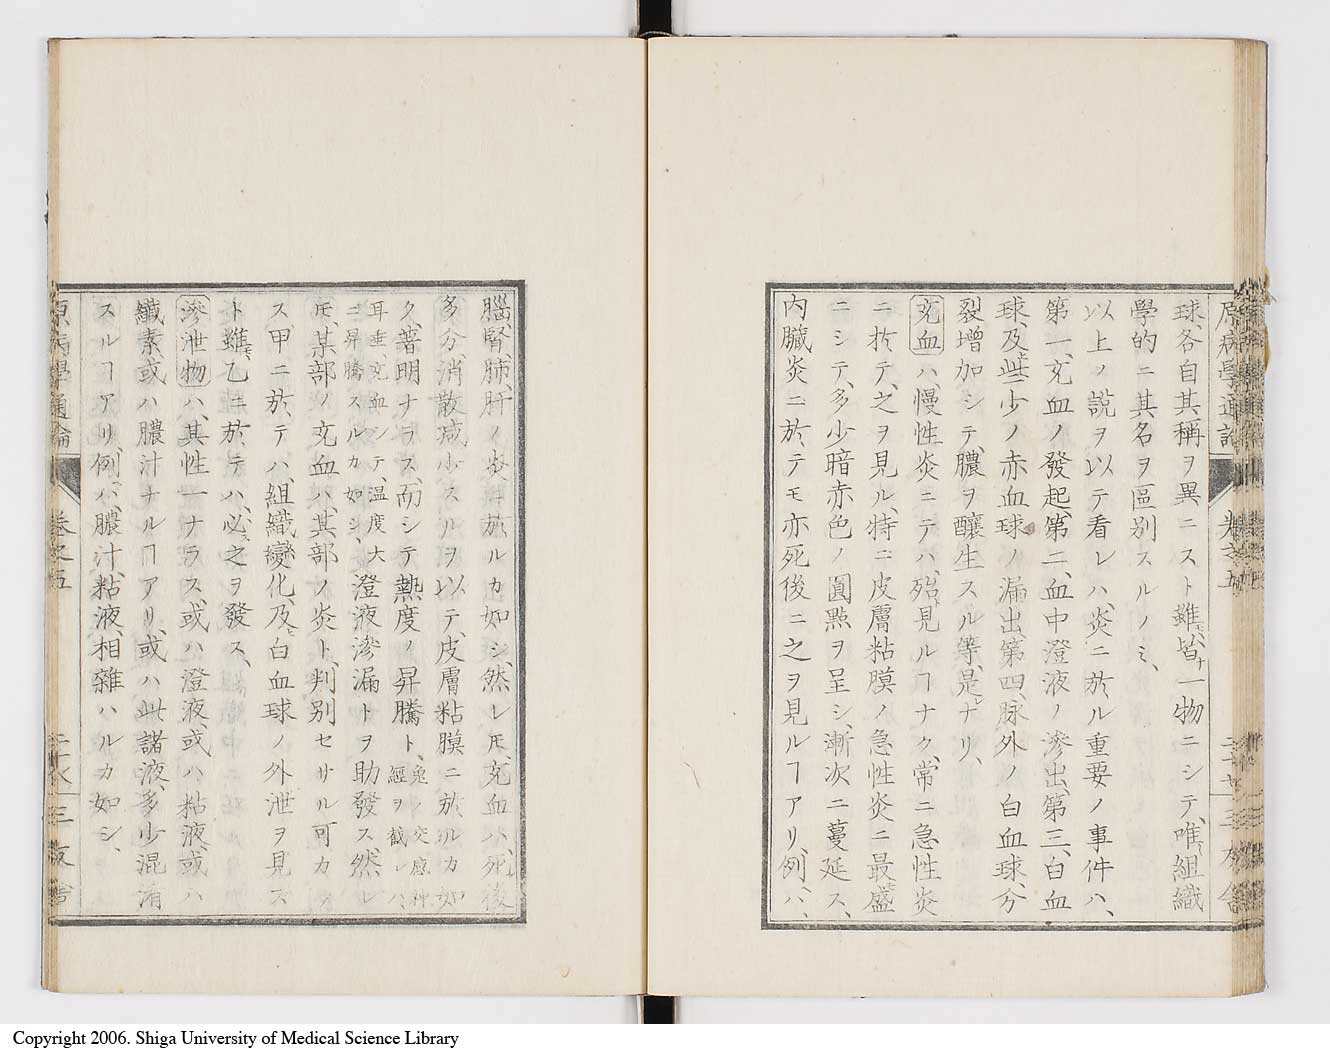 球、各自其稱ヲ異ニスト雖モ、皆ナ一物ニシテ、唯、組織
學的ニ其名ヲ區別スルノミ、
以上ノ說ヲ以テ看レハ、炎ニ於ル重要ノ事件ハ、
第一、充血ノ發起、第二、血中澄液ノ滲出、第三、白血
球、及ヒ些少ノ赤血球ノ漏出、第四、脉外ノ白血球、分
裂增加シテ、膿ヲ釀生スル等、是レナリ、
充血ハ、慢性炎ニテハ、殆ト見ルヿナク、常ニ急性炎
ニ於テ、之ヲ見ル、特ニ皮膚粘膜ノ急性炎ニ最盛
ニシテ、多少暗赤色ノ圓㸃ヲ呈シ、漸次ニ蔓延ス、
内臟炎ニ於テモ亦死後ニ之ヲ見ルヿアリ、例ハ、
腦、腎、肺、肝ノ炎ニ於ルカ如シ、然レモ、充血ハ、死後
多分、消散减少スルヲ以テ、皮膚粘膜ニ於ルカ如
ク、著明ナラス、而シテ熱度ノ昇騰ト、兎ノ交感神
經ヲ截レハ、
耳垂、充血シテ、温度大
ニ昇騰スルカ如シ、澄液滲漏トヲ助發ス、然レ
モ、某部ノ充血ハ、其部ノ炎ト、判別セサル可カラ
ス甲ニ於テハ、組織變化、及ヒ白血球ノ外泄ヲ見ス
ト雖モ、乙ニ於テハ、必ス之ヲ發ス、
滲泄物ハ、其性一ナラス、或ハ澄液、或ハ粘液、或ハ
纖素、或ハ膿汁ナルヿアリ、或ハ此諸液、多少混淆
スルヿアリ、例ハ、膿汁、粘液、相雜ハルカ如シ、
原病學通論 卷之五